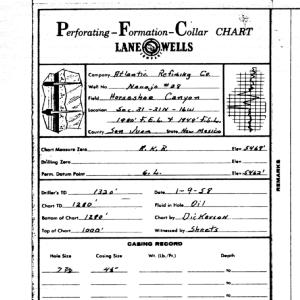 Perforating - Formation - Collar CHART
LANE WELLS
Company Atlantic Refining Co.
Well No. Navajo #28
Field Horseshoe Canyon
Location Sec. 31-31N-16W
1980' F.E.L. & 1940' F.S.L.
County San Juan State New Mexico
Chart Measure Zero R.K.B. Ele= 5469'
Drilling Zero Ele=
Perm. Datum Point G.L. Ele= 5462'
Driller's TD 1320' Date 1-9-58
Chart TD 1280' Fluid in Hole Oil
Bottom of Chart 1280' Chart by Dickerson
Top of Chart 1000' Witnessed by Sheets
REMARKS
CASING RECORD
Hole Size Casing Size Wt. (Lb./Ft.) Depth
to
to
to